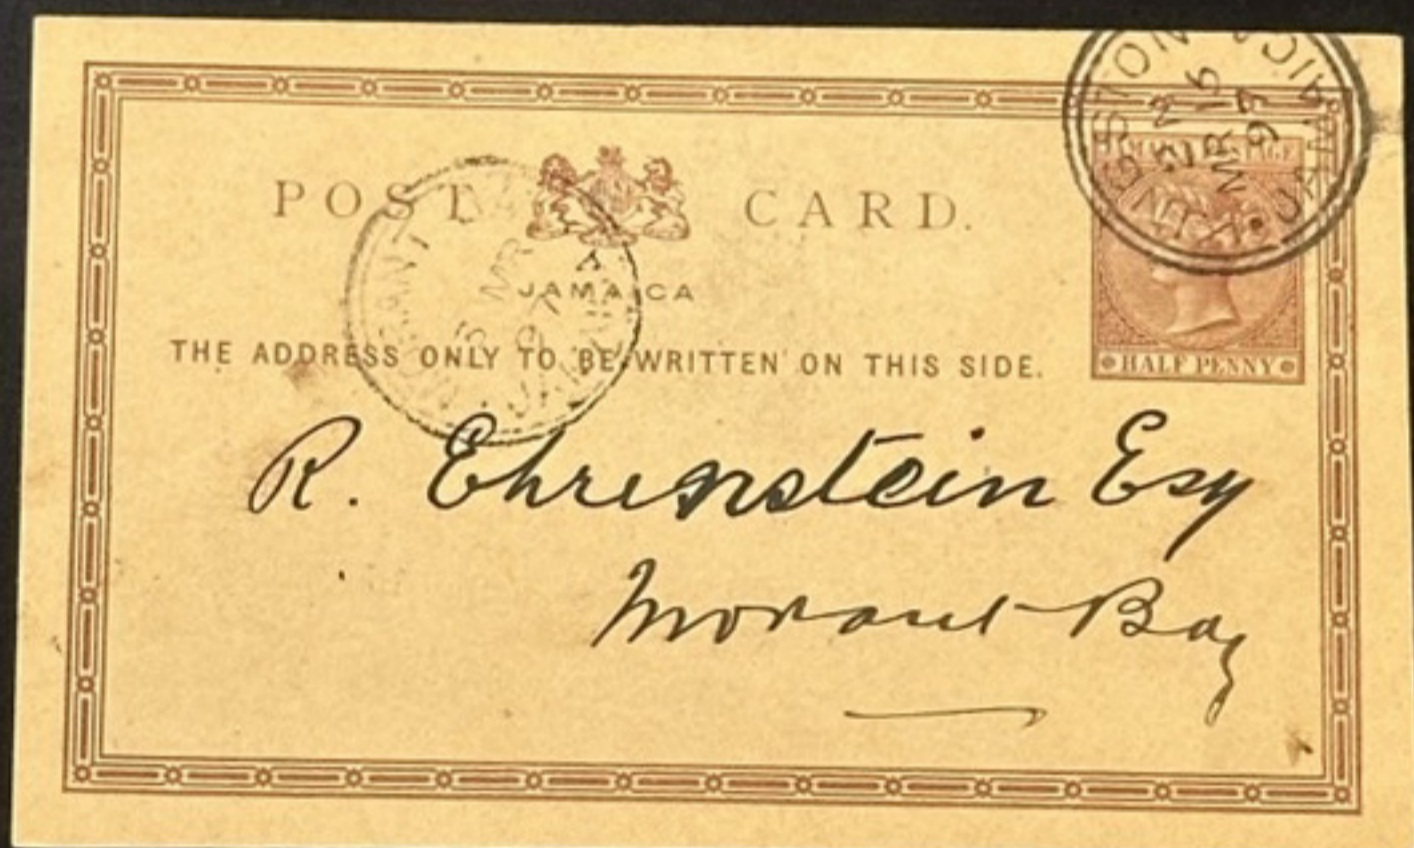 POST CARD.
JAMAICA
THE ADDRESS ONLY TO BE WRITTEN ON THIS SIDE.
HALF PENNY
KINGSTON JAMAICA
MR 16
97
MORANT BAY
MR
97
JAMAICA
R. Ehrenstein Esq
Morant Bay